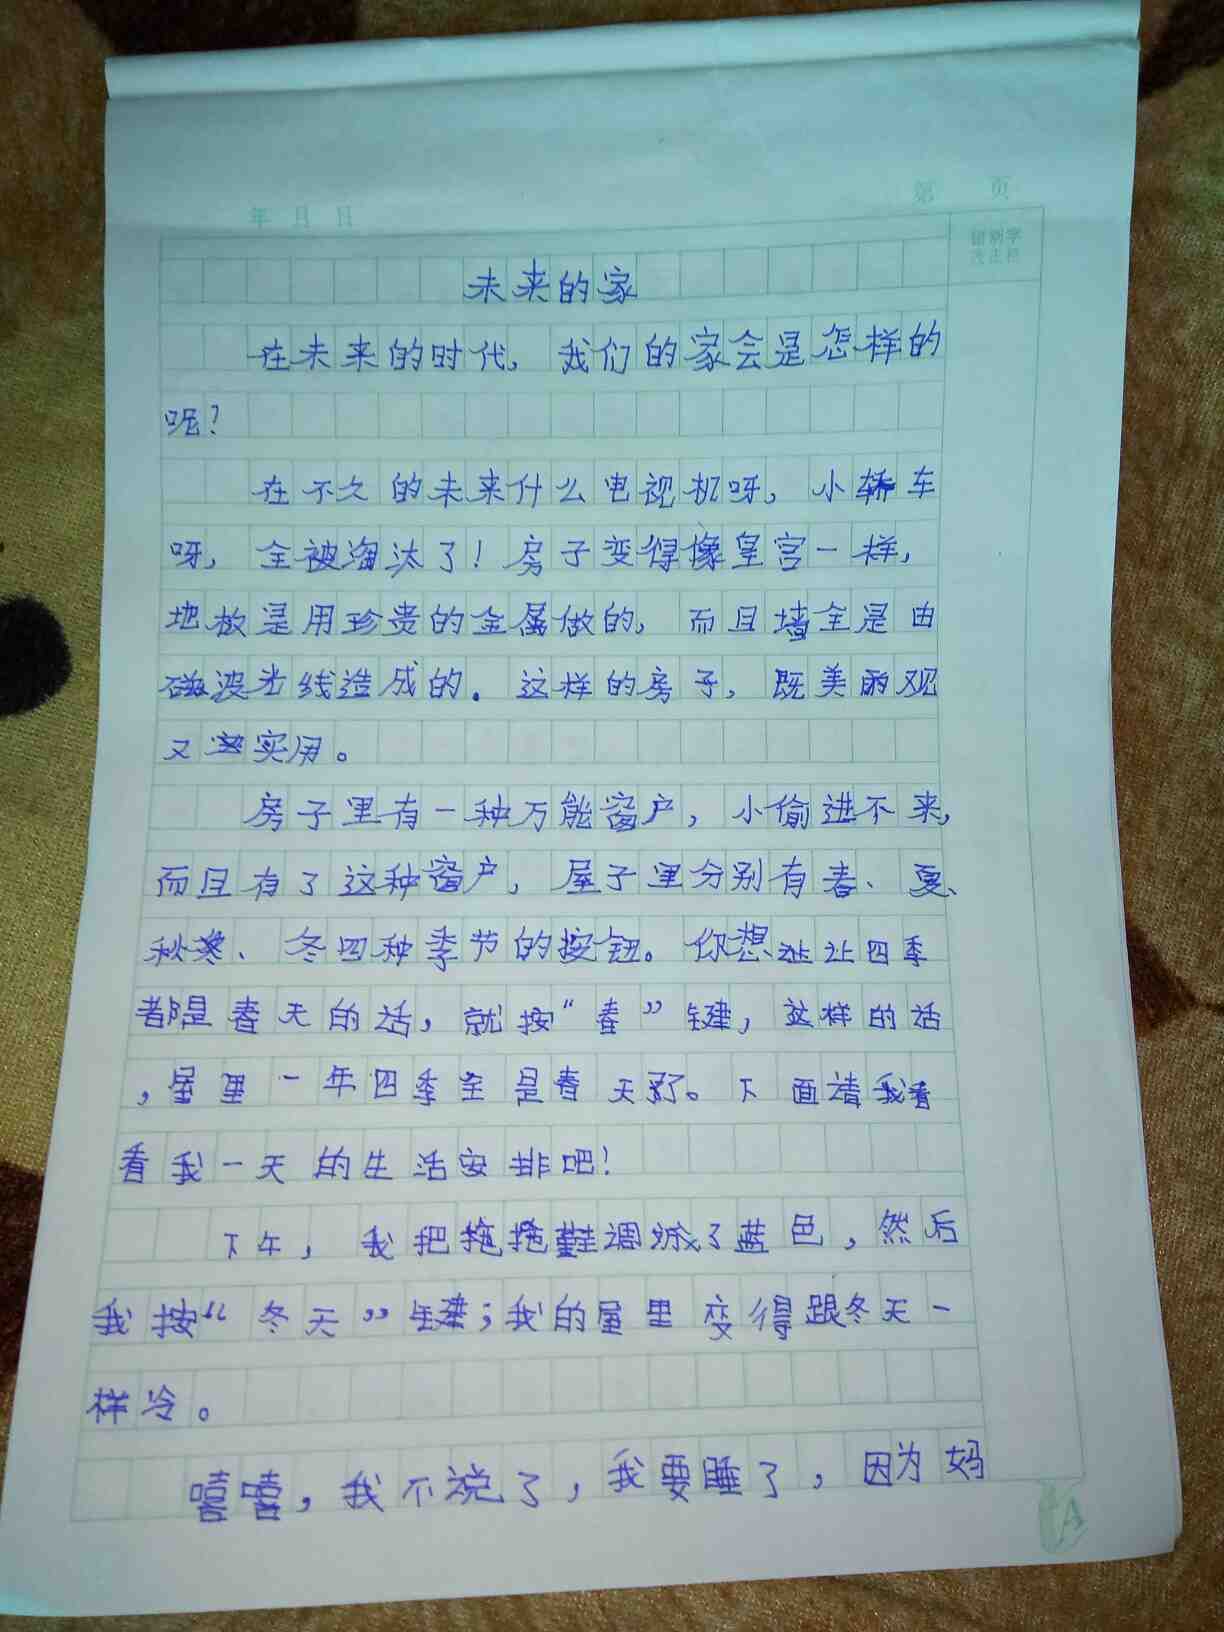 年 月 日
第 页
错别字
改正栏
未来的家
在未来的时代，我们的家会是怎样的
呢？
在不久的未来什么电视机呀，小轿车
呀，全被淘汰了！房子变得像皇宫一样，
地板是用珍贵的金属做的，而且墙全是由
磁波光线造成的．这样的房子，既美丽观
又实用。
房子里有一种万能窗户，小偷进不来，
而且有了这种窗户，屋子里分别有春、夏、
秋、冬四种季节的按钮。你想让四季
都是春天的话，就按“春”键，这样的话
，屋里一年四季全是春天了。下面请我看
看我一天的生活安排吧！
下午，我把拖鞋调成了蓝色，然后
我按“冬天”键；我的屋里变得跟冬天一
样冷。
嘻嘻，我不说了，我要睡了，因为妈